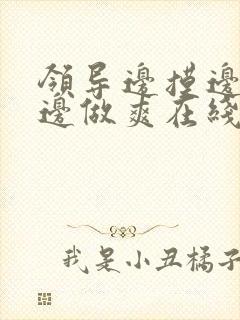 領导邊摸邊
邊做爽在綫
我是小丑橘子